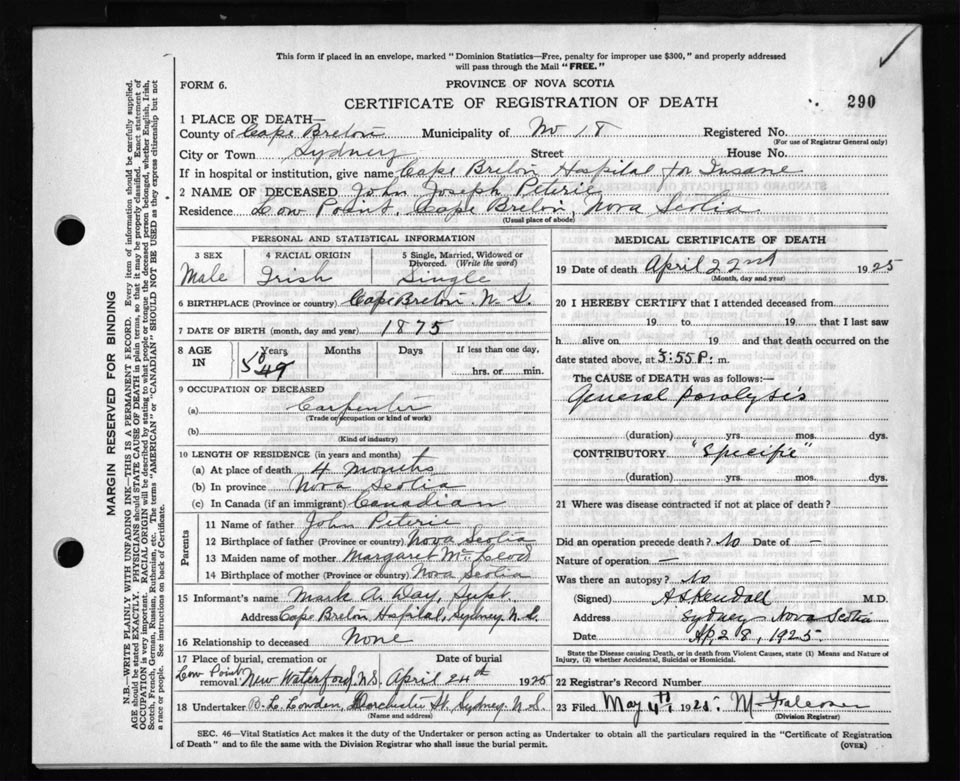 This form if placed in an envelope, marked "Dominion Statistics—Free, penalty for improper use $300," and properly addressed
will pass through the Mail "FREE."
FORM 6.
PROVINCE OF NOVA SCOTIA
CERTIFICATE OF REGISTRATION OF DEATH
290
1 PLACE OF DEATH—
County of Cape Breton Municipality of No 18 Registered No.
(For use of Registrar General only)
City or Town Sydney Street House No.
If in hospital or institution, give name Cape Breton Hospital for Insane
2 NAME OF DECEASED John Joseph Peterie
Residence Low Point, Cape Breton, Nova Scotia
(Usual place of abode)
PERSONAL AND STATISTICAL INFORMATION
3 SEX 4 RACIAL ORIGIN 5 Single, Married, Widowed or Divorced. (Write the word)
Male Irish Single
6 BIRTHPLACE (Province or country) Cape Breton. N. S.
7 DATE OF BIRTH (month, day and year) 1875
8 AGE IN Years Months Days If less than one day,
49 hrs. or min.
9 OCCUPATION OF DECEASED
(a) Carpenter
(Trade or occupation or kind of work)
(b)
(Kind of industry)
10 LENGTH OF RESIDENCE (in years and months)
(a) At place of death 4 months
(b) In province Nova Scotia
(c) In Canada (if an immigrant) Canadian
Parents
11 Name of father John Peterie
12 Birthplace of father (Province or country) Nova Scotia
13 Maiden name of mother Margaret McLeod
14 Birthplace of mother (Province or country) Nova Scotia
15 Informant's name Mark A. Day, Supt.
Address Cape Breton Hospital, Sydney. N.S.
16 Relationship to deceased None
17 Place of burial, cremation or removal Low Point New Waterford, N.S. Date of burial April 24th 1925
18 Undertaker B. L. Lowden, Dorchester St. Sydney. N.S.
(Name and address)
MEDICAL CERTIFICATE OF DEATH
19 Date of death April 22nd 1925
(Month, day and year)
20 I HEREBY CERTIFY that I attended deceased from
19 to 19 that I last saw
h alive on 19 and that death occurred on the
date stated above, at 3:55 P. m.
The CAUSE of DEATH was as follows:—
General paralysis
(duration) yrs. mos. dys.
CONTRIBUTORY "Specific"
(duration) yrs. mos. dys.
21 Where was disease contracted if not at place of death?
Did an operation precede death? No Date of —
Nature of operation —
Was there an autopsy? No
(Signed) A S Kendall M.D.
Address Sydney Nova Scotia
Date Ap 28, 1925
State the Disease causing Death, or in death from Violent Causes, state (1) Means and Nature of Injury, (2) whether Accidental, Suicidal or Homicidal.
22 Registrar's Record Number
23 Filed May 4th 1925: M Falconer
(Division Registrar)
SEC. 46—Vital Statistics Act makes it the duty of the Undertaker or person acting as Undertaker to obtain all the particulars required in the "Certificate of Registration
of Death" and to file the same with the Division Registrar who shall issue the burial permit.
(OVER)
MARGIN RESERVED FOR BINDING
N.B.—WRITE PLAINLY WITH UNFADING INK—THIS IS A PERMANENT RECORD. Every item of information should be carefully supplied.
AGE should be stated EXACTLY. PHYSICIANS should STATE CAUSE OF DEATH in plain terms, so that it may be properly classified. Exact statement of
OCCUPATION is very important. RACIAL ORIGIN will be described by stating to what people or tongue the deceased person belonged, whether English, Irish,
Scotch, French, German, Russian, Ruthenian, etc. The terms "AMERICAN" or "CANADIAN" SHOULD NOT BE USED as they express citizenship but not
a race or people. See instructions on back of Certificate.